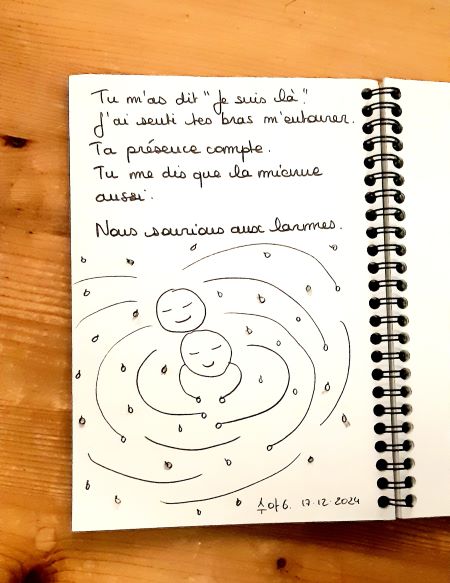 Tu m'as dit "Je suis là".
J'ai senti tes bras m'entourer.
Ta présence compte.
Tu me dis que la mienne
aussi.
Nous sourions aux larmes.
17.12.2024